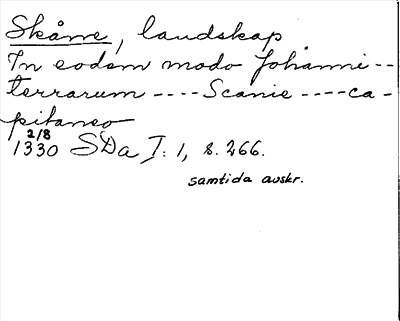 Skåne, landskap
In eodem modo Johanni --
terrarum ---- Scanie ---- ca-
pitaneo
2/8
1330 SDa I: 1, s. 266.
samtida avskr.